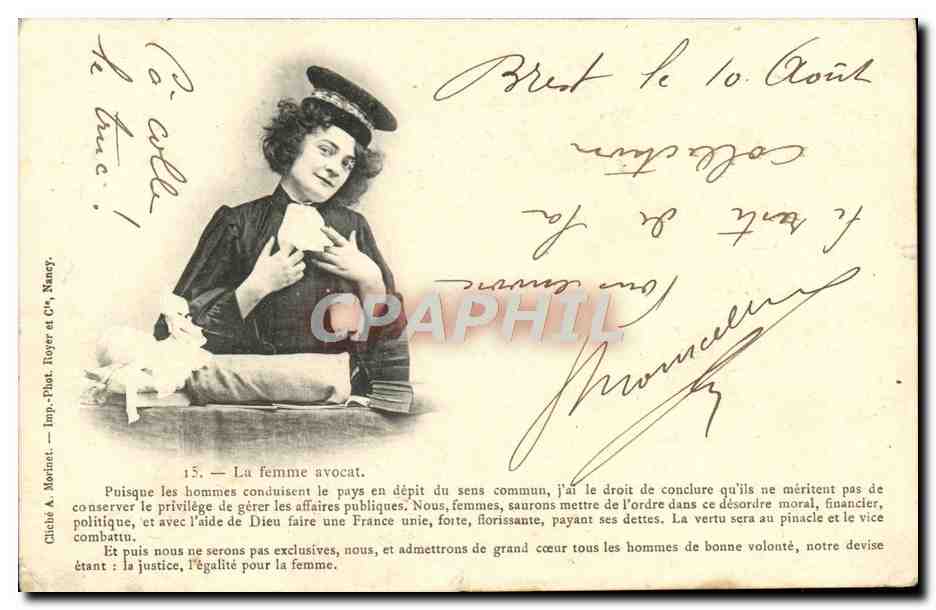 Brest le 10 Août
Ça colle
le truc !
le reste de la
collection
Cliché A. Morinet. — Imp.-Phot. Royer et Cie, Nancy.
CPAPHIL
15. — La femme avocat.
Puisque les hommes conduisent le pays en dépit du sens commun, j'ai le droit de conclure qu'ils ne méritent pas de
conserver le privilège de gérer les affaires publiques. Nous, femmes, saurons mettre de l'ordre dans ce désordre moral, financier,
politique, et avec l'aide de Dieu faire une France unie, forte, florissante, payant ses dettes. La vertu sera au pinacle et le vice
combattu.
Et puis nous ne serons pas exclusives, nous, et admettrons de grand cœur tous les hommes de bonne volonté, notre devise
étant : la justice, l'égalité pour la femme.